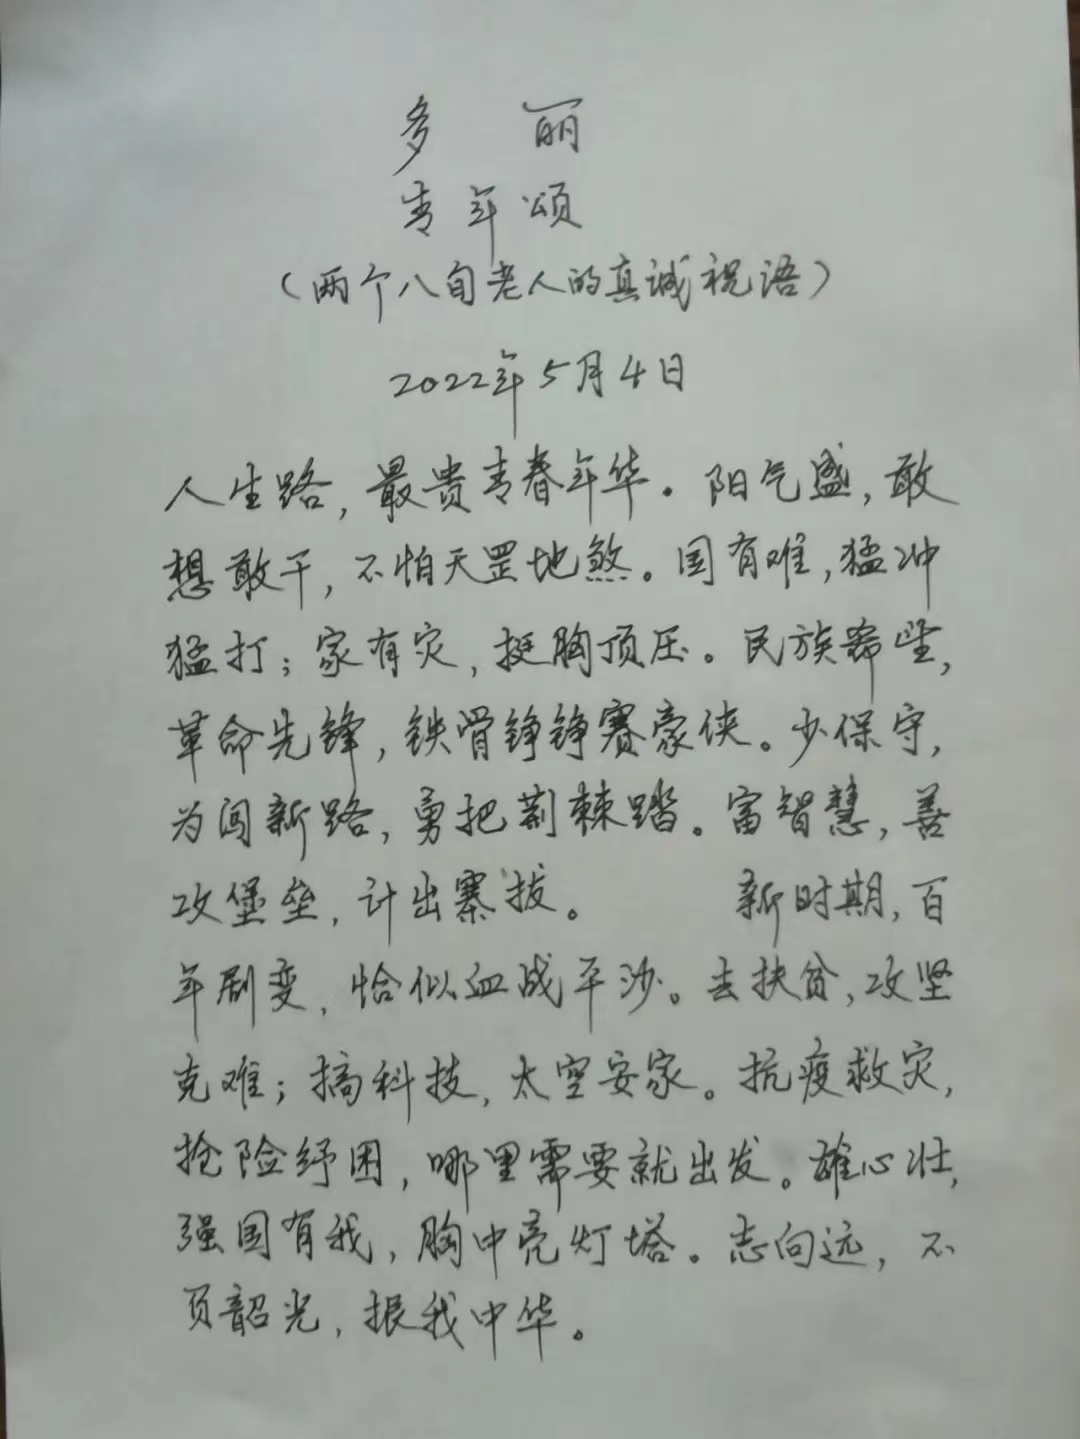 多 丽
青年颂
（两个八旬老人的真诚祝语）
2022年5月4日
人生路，最贵青春年华。阳气盛，敢
想敢干，不怕天罡地煞。国有难，猛冲
猛打；家有灾，挺胸顶压。民族脊坚，
革命先锋，铁骨铮铮赛豪侠。少保守，
为闯新路，勇把荆棘踏。富智慧，善
攻堡垒，计出寨拔。 新时期，百
年剧变，恰似血战平沙。去扶贫，攻坚
克难；搞科技，太空安家。抗疫救灾，
抢险纾困，哪里需要就出发。雄心壮，
强国有我，胸中亮灯塔。志向远，不
负韶光，振我中华。